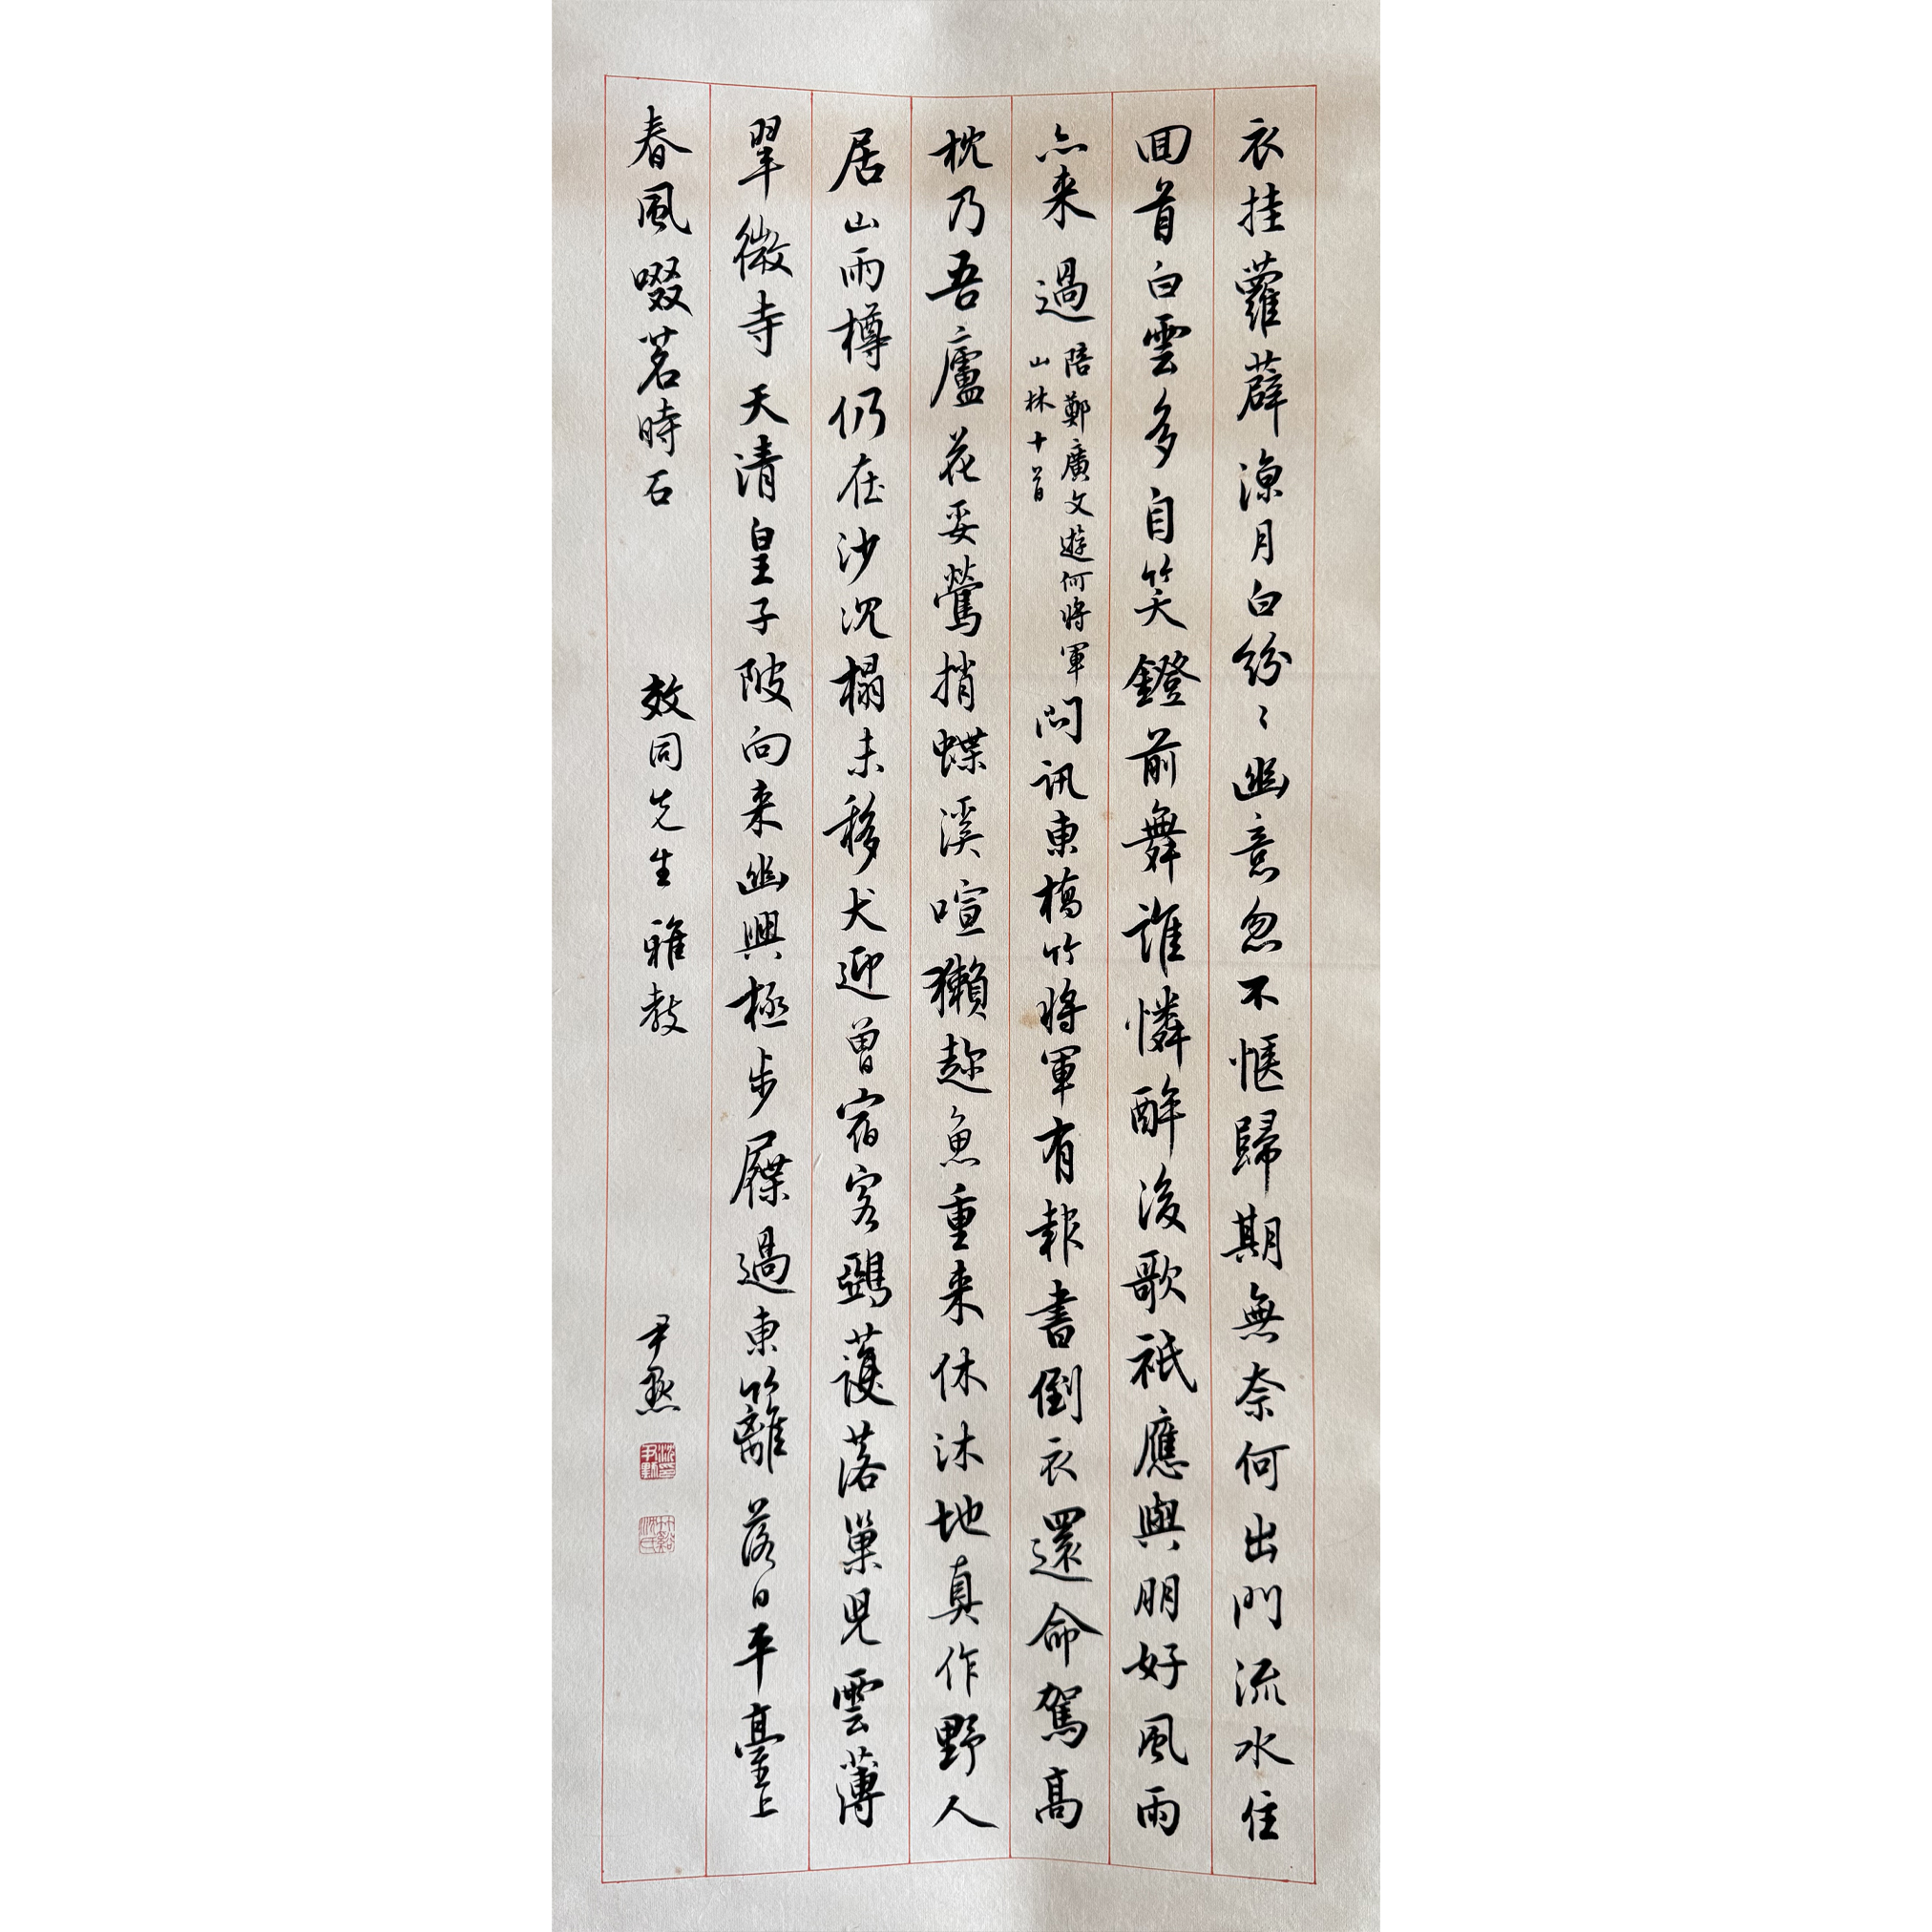 衣挂蘿薜涼月白紛〻幽意忽不愜歸期無奈何出門流水住
回首白雲多自笑鐙前舞誰憐醉後歌祇應與朋好風雨
亦来過 陪鄭廣文遊何將軍山林十首 問訊東橋竹將軍有報書倒衣還命駕高
枕乃吾廬花妥鶯捎蝶溪喧獺趂魚重来休沐地真作野人
居山雨樽仍在沙沉榻未移犬迎曾宿客鵶護落巢兒雲薄
翠微寺天清皇子陂向来幽興極步屧過東籬落日平臺上
春風啜茗時石 效同先生雅教 尹默
沈尹默印
竹谿沈氏